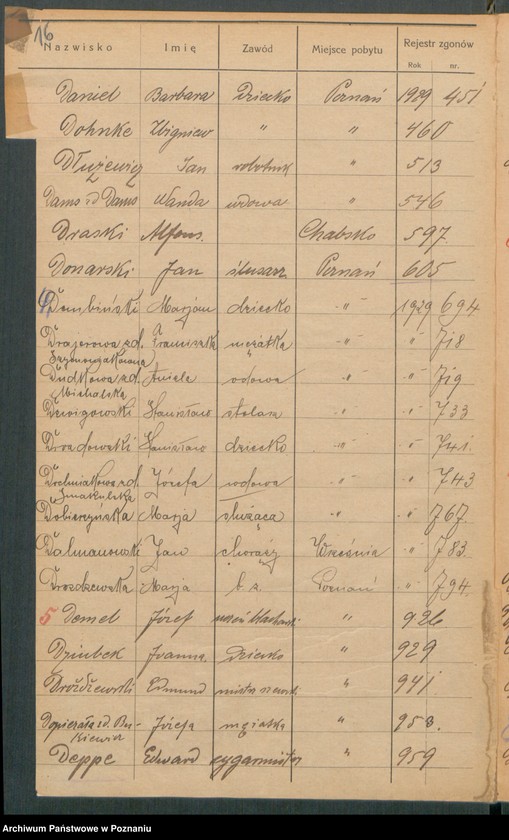 16
Nazwisko Imię Zawód Miejsce pobytu Rejestr zgonów
Rok nr.
Daniel Barbara Dziecko Poznań 1929 451
Dohnke Zbigniew " " 460
Dłużewicz Jan robotnik " 513
Dams zd Dams Wanda wdowa " 546
Draski Alfons. Chabsko 597
Donarski Jan ślusarz Poznań 605
Dembiński Marjan dziecko -"- 1929 694
Drajerowa zd. Franciszka mężatka -"- -"- 718
Szymonżakowna
Dudkowa zd. Aniela wdowa -"- -"- 719
Michalska
Stanisław stolarz -"- -"- 733
Stanisław dziecko -"- -"- 741.
zd. Józefa wdowa -"- -"- 743
Dobierzyńska Marja służąca -"- -"- 767.
Dalmanowski Jan chorąży Września -"- 783.
Drozdzewska Marja b. z. Poznań -"- 794.
5 Demel Józef " 926
Dziubek Joanna. Dziecko " 929
Drożdżewski Edmund " 941
Dopierała zd. Bu- Józefa mężatka " 953.
kiewicz
Deppe Edward cygarmistrz " 959
Archiwum Państwowe w Poznaniu